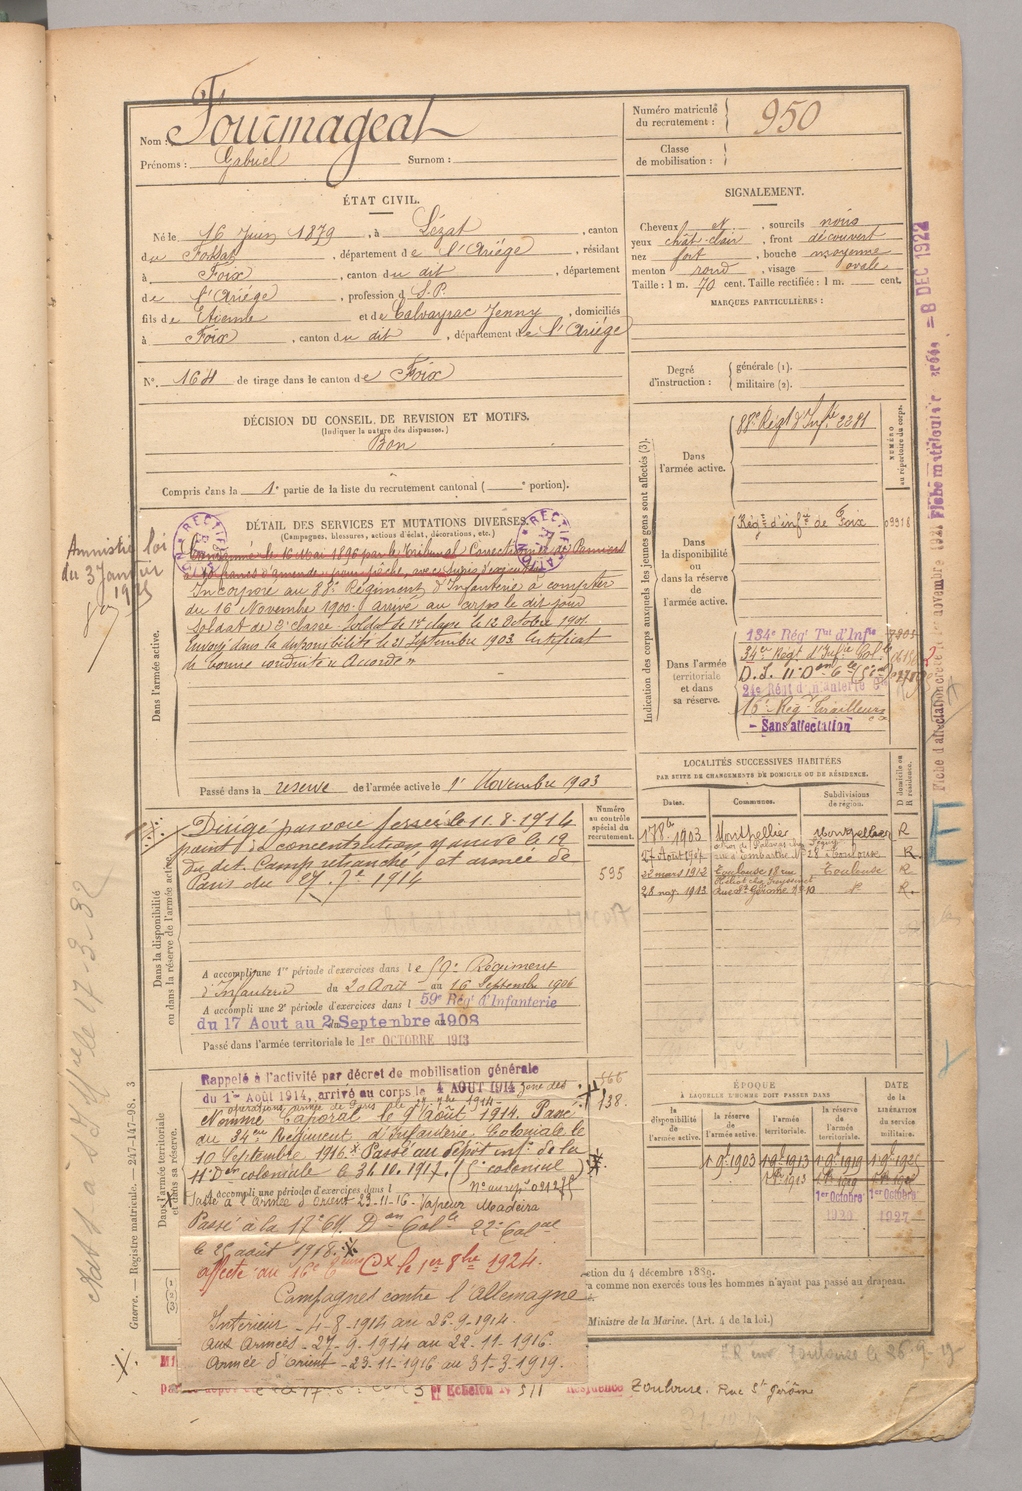 Nom : Fourmageat
Prénoms : Gabriel Surnom :
Numéro matricule du recrutement : 950
Classe de mobilisation :
ÉTAT CIVIL.
Né le 16 Juin 1879, à Lézat, canton
du Fossat, département de l'Ariège, résidant
à Foix, canton du dit, département
de l'Ariège, profession d S.P.
fils de Etienne et de Calvayrac Jenny, domiciliés
à Foix, canton du dit, département de l'Ariège
N° 164 de tirage dans le canton de Foix
SIGNALEMENT.
Cheveux N., sourcils noirs
yeux chât. clair, front découvert
nez fort, bouche moyenne
menton rond, visage ovale
Taille : 1 m. 70 cent. Taille rectifiée : 1 m. cent.
MARQUES PARTICULIÈRES :
Degré d'instruction : générale (1).
militaire (2).
DÉCISION DU CONSEIL DE REVISION ET MOTIFS.
(Indiquer la nature des dispenses.)
Bon
Compris dans la 1e partie de la liste du recrutement cantonal ( e portion).
DÉTAIL DES SERVICES ET MUTATIONS DIVERSES
(Campagnes, blessures, actions d'éclat, décorations, etc.)
RECTIFICATION
RECTIFICATION
Amnistie loi
du 3 Janvier
1925
Condamné le 16 Mai 1896 par le Tribunal Correctionnel de Pamiers
à francs d'amende pour pêche, avec sursis
Dans l'armée active.
Incorporé au 88e Régiment d'Infanterie à compter
du 16 Novembre 1900. arrivé au corps le dit jour
Soldat de 2e classe. Soldat de 1re classe le 12 Octobre 1901.
Envoyé dans la disponibilité le 21 Septembre 1903 Certificat
de bonne conduite « Accordé »
Passé dans la réserve de l'armée active le 1er Novembre 1903
Indication des corps auxquels les jeunes gens sont affectés (3).
NUMÉRO au répertoire du corps.
Dans l'armée active.
88e Régt d'Infie 2281
Dans la disponibilité ou dans la réserve de l'armée active.
Régt d'infie de Foix
Dans l'armée territoriale et dans sa réserve.
134e Rég' Tal d'Infie
34e Régt d'Infie Col.
24e Régt d'Infanterie Cle
16e Rég Tirailleurs
- Sans affectation
LOCALITÉS SUCCESSIVES HABITÉES
PAR SUITE DE CHANGEMENTS DE DOMICILE OU DE RÉSIDENCE.
Dates. Communes. Subdivisions de région. D domicile ou R résidence.
1903 Montpellier Montpellier R
27 Août 1907 Toulouse R.
22 mars 1912 Toulouse 18 rue Toulouse R
28 nov. 1913 Rue St Gérome R.
Dans la disponibilité ou dans la réserve de l'armée active.
Numéro au contrôle spécial du recrutement.
595
Dirigé par voie ferrée le 11.8.1914
point de concentration y arrivé le 12
du dit. Camp retranché et armée de
Paris du 27.7e 1914
A accompli une 1re période d'exercices dans le 59e Régiment
d'Infanterie du 20 Août au 16 Septembre 1906
A accompli une 2e période d'exercices dans l 59e Rég' d'Infanterie
du 17 Aout au 2 Septembre 1908
Passé dans l'armée territoriale le 1er OCTOBRE 1913
Dans l'armée territoriale et dans sa réserve.
Rappelé à l'activité par décret de mobilisation générale
du 1er Août 1914, arrivé au corps le 4 AOUT 1914 zone des
opérations armée de Paris
138.
Nommé Caporal le 9 Août 1914. Passé
au 34e Régiment d'Infanterie Coloniale le
10 Septembre 1916 Passé au dépôt infie de la
11e Don coloniale le
A accompli une période d'exercices dans l
Passé à l'Armée d'Orient 23-11-16 Vapeur Madeira
Passé à la 17e Don Colle 22e Colal
le 25 août 1918.
affecté au 16e le 1er 8bre 1924.
Campagnes contre l'Allemagne
Intérieur - 4-8-1914 au 26-9-1914.
aux armées - 27-9-1914 au 22-11-1916.
Armée d'Orient - 23-11-1916 au 31-3-1919.
ÉPOQUE
À LAQUELLE L'HOMME DOIT PASSER DANS
DATE DE LA LIBÉRATION du service militaire.
la disponibilité de l'armée active. la réserve de l'armée active. l'armée territoriale. la réserve de l'armée territoriale.
1 9e 1903 1 9e 1913 1 9e 1919
1er Octobre 1er Octobre
1927
ction du 4 décembre 1889.
a comme non exercés tous les hommes n'ayant pas passé au drapeau.
Ministre de la Marine. (Art. 4 de la loi.)
Echelon
Résidence Toulouse. Rue St Gérôme
Guerre. — Registre matricule. — 247-147-98. 3
= 8 DEC 1922
E